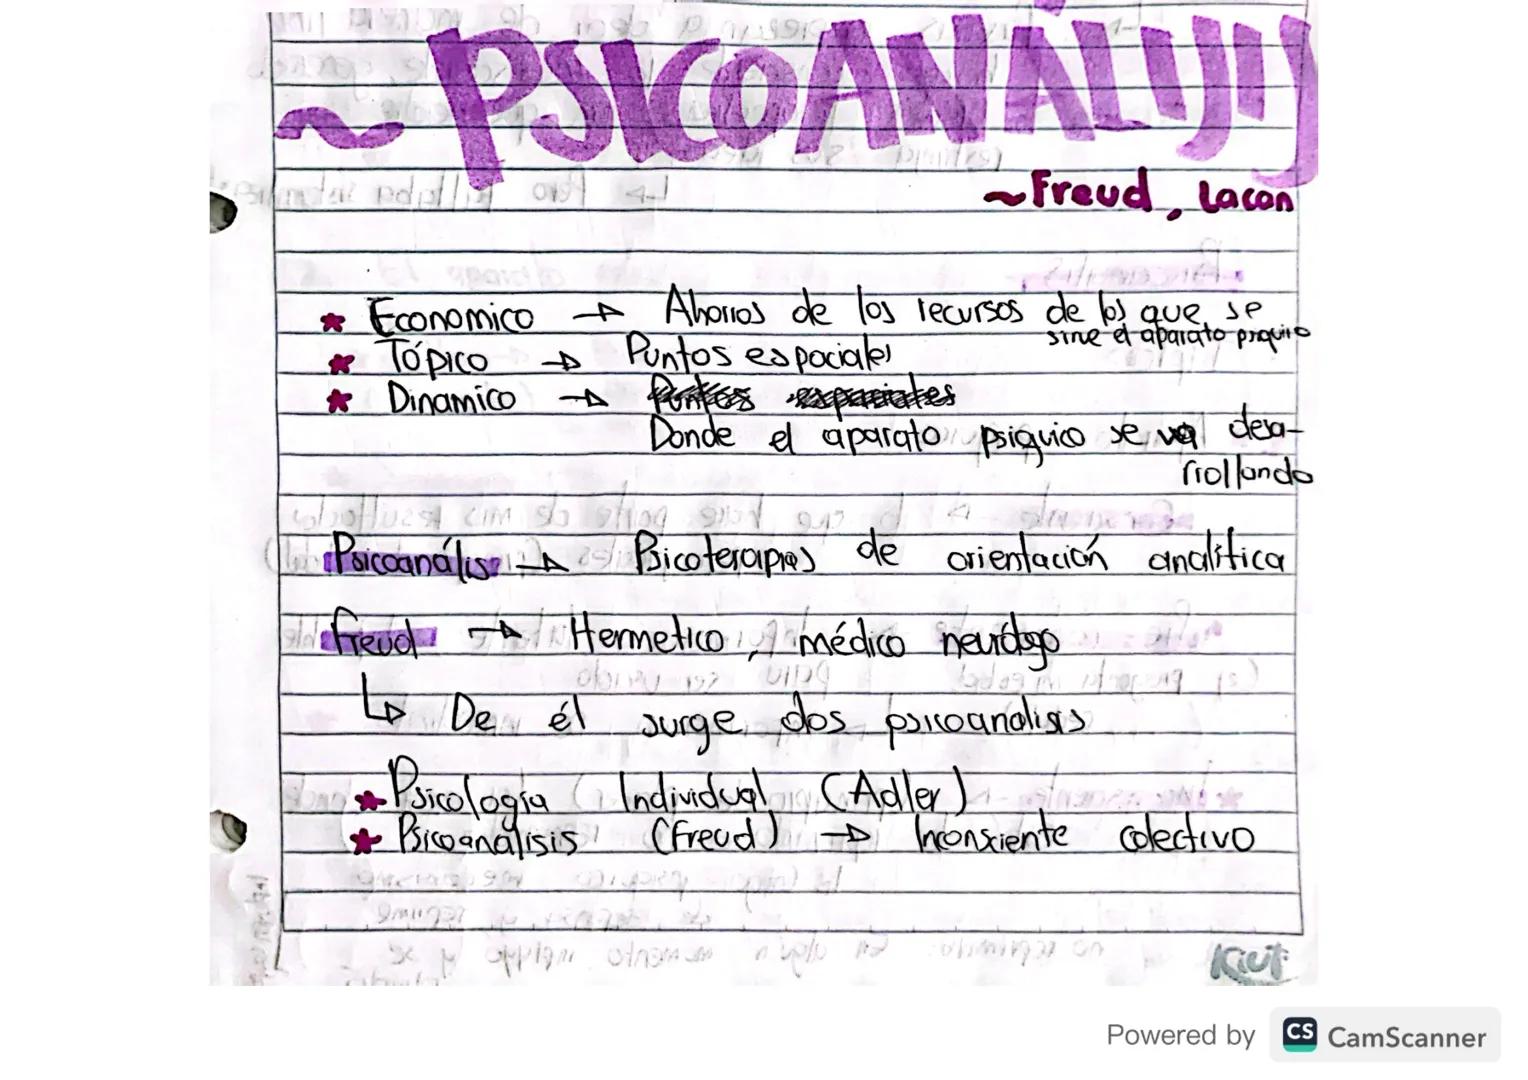 ~ PSICOANÁLISIS
~Freud, Lacan
Economico → Ahorros de los recursos de los que se
sirve el aparato psiquico
Tópico → Puntos espaciales
Dinamico → Puntos espaciales
Donde el aparato psiquico se va desa-
rrollando
Psicoanálisis → Psicoterapias de orientación analítica
Freud → Hermetico, médico neurólogo
↳ De él surge dos psicoanalisis
Psicología Individual (Adler)
Psicoanálisis (Freud) → Inconsciente colectivo
Kiut
Powered by CS CamScanner